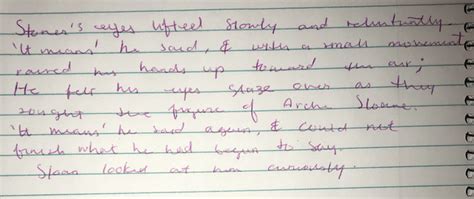 Stoner's eyes lifted slowly and reluctantly.
'It means' he said, & with a small movement
raised his hands up toward the air;
He felt his eyes glaze over as they
sought the figure of Archer Sloane.
'It means' he said again, & could not
finish what he had begun to say.
Sloan looked at him curiously.